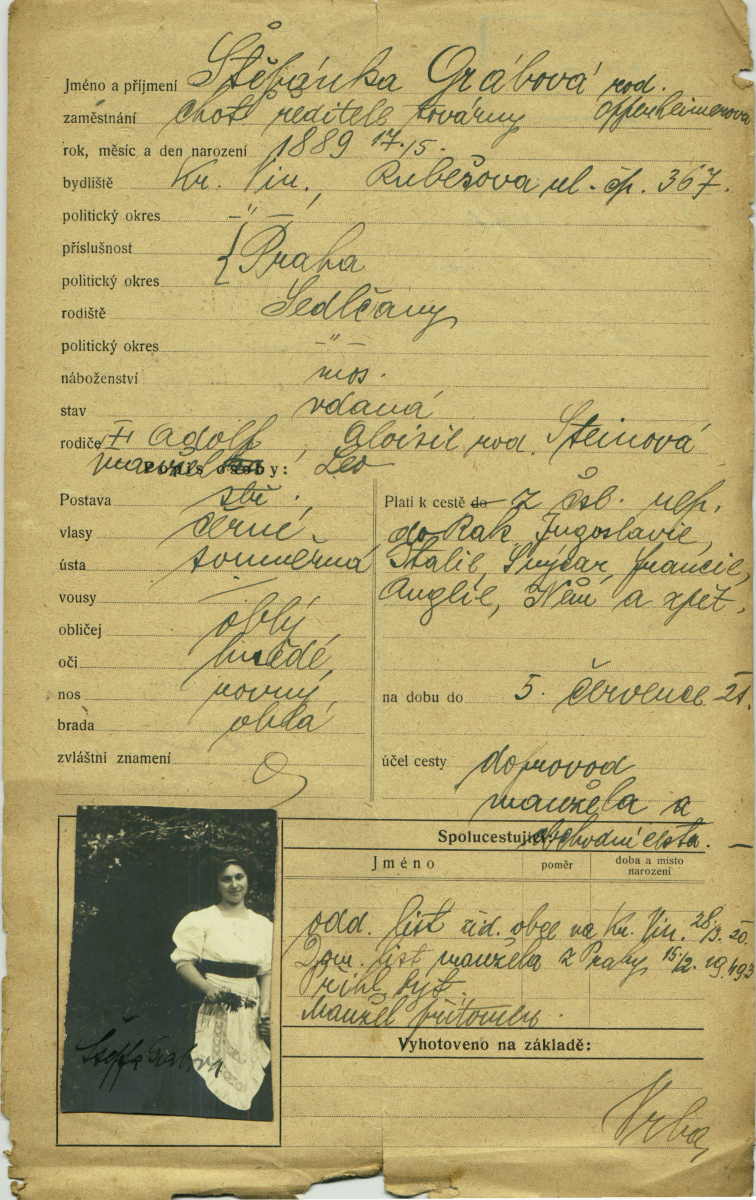 Jméno a příjmení Štěpánka Grábová rod. Oppenheimerova
zaměstnání choť ředitele továrny
rok, měsíc a den narození 1889 17./5.
bydliště Kr. Vin., Rubešova ul. čp. 367.
politický okres —"—
příslušnost { Praha
politický okres
rodiště Sedlčany
politický okres —"—
náboženství mos.
stav vdaná
rodiče † Adolf, Aloisie rod. Steinová
manžel Leo
Popis osoby:
Postava stř.
vlasy černé
ústa souměrná
vousy —
obličej oblý
oči hnědé
nos rovný
brada oblá
zvláštní znamení
Platí k cestě do z čsl. rep.
do Rak. Jugoslavie,
Italie, Švýcar, Francie,
Anglie, Něm. a zpět.
na dobu do 5. července 21.
účel cesty doprovod
manžela a
obchodní cesta.
Spolucestující:
Jméno
poměr
doba a místo narození
odd. list říd. obce na Kr. Vin. 28./3. 20.
Dom. list manžela z Prahy 15./2.
Přihl. byt.
Manžel přítomen.
Vyhotoveno na základě:
Vrba